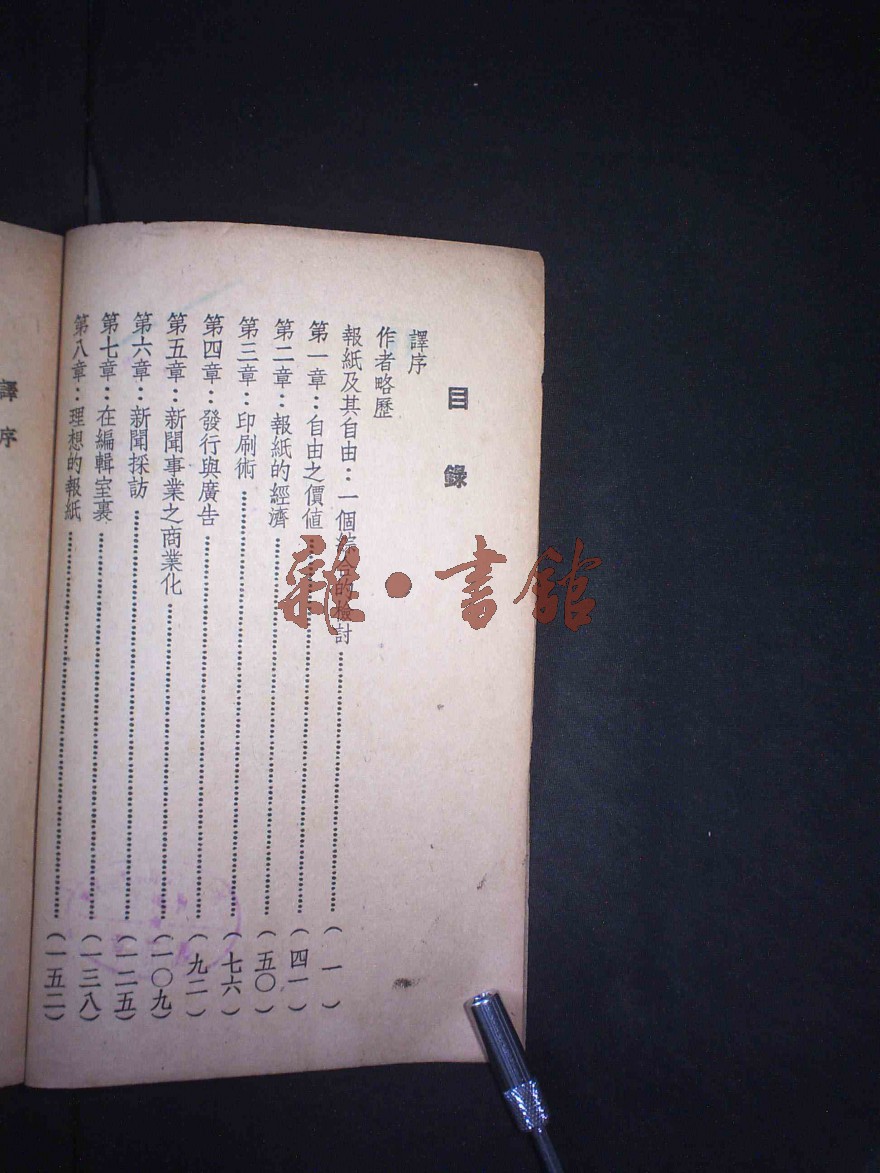 目錄
譯序
作者略歷
報紙及其自由：一個綜合的檢討（一）
第一章：自由之價值（四一）
第二章：報紙的經濟（五〇）
第三章：印刷術（七六）
第四章：發行與廣告（九二）
第五章：新聞事業之商業化（一〇九）
第六章：新聞採訪（一二五）
第七章：在編輯室裏（一三八）
第八章：理想的報紙（一五二）
譯序
雜·書館